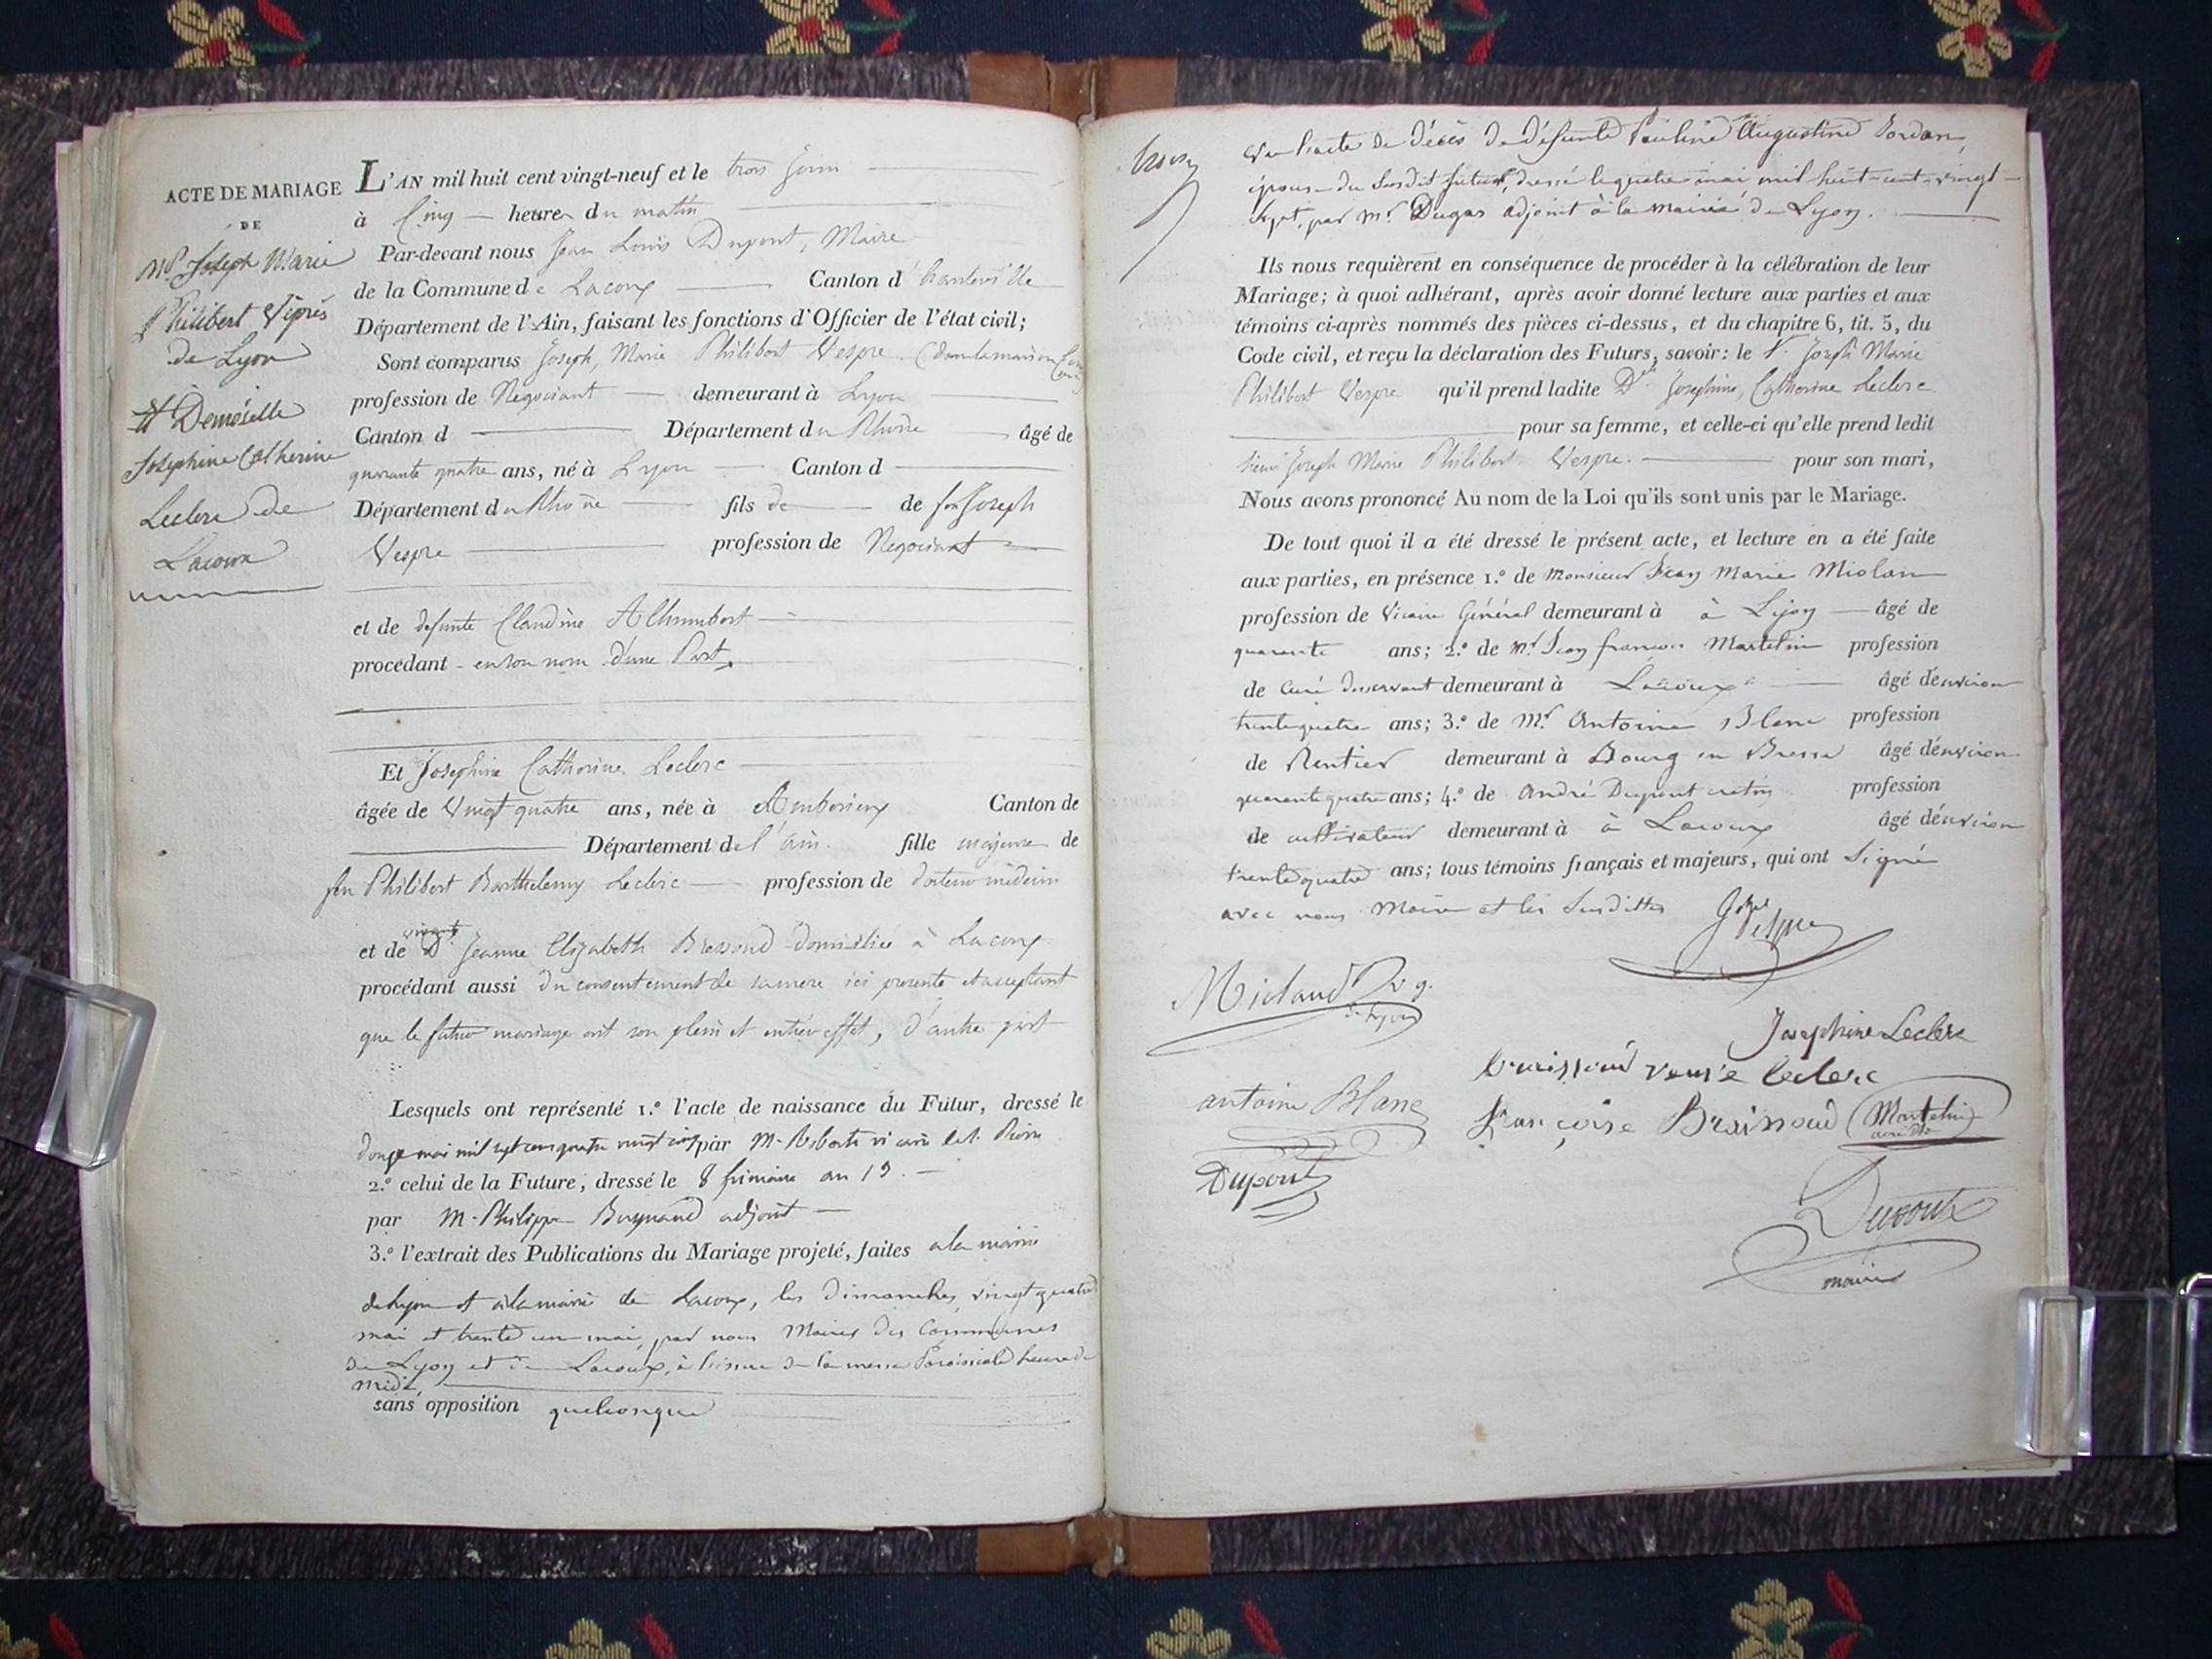 ACTE DE MARIAGE
DE
Mr Joseph Marie
Philibert Vêpres
de Lyon
et Demoiselle
Josephine Catherine
Leclerc de
Lacoux
L'AN mil huit cent vingt-neuf et le trois Juin
à Cinq heures du matin
Par-devant nous Jean Louis Dupont, Maire
de la Commune de Lacoux Canton d'hauteville
Département de l'Ain, faisant les fonctions d'Officier de l'état civil;
Sont comparus Joseph, Marie Philibert Vespre
profession de Negociant demeurant à Lyon
Canton d Département du Rhône âgé de
quarante quatre ans, né à Lyon Canton d
Département du Rhône fils de de feu Joseph
Vespre profession de Negociant
et de defunte Claudine Alhumbert
procédant en son nom d'une Part,
Et Josephine Catherine Leclerc
âgée de Vingt quatre ans, née à Amberieux Canton de
Département de l'ain. fille majeure de
feu Philibert Barthelemy Leclerc profession de docteur médecin
et de De Jeanne Elizabeth domiciliée à Lacoux
procédant aussi du consentement de sa mere ici presente et acceptant
que le futur mariage ait son plein et entier effet, d'autre part
Lesquels ont représenté 1.º l'acte de naissance du Futur, dressé le
douze mai mil sept cent quatre vingt cinq par M. vicaire de St. Pierre
2.º celui de la Future, dressé le 8 frimaire an 13.
par M. Philippe adjoint
3.º l'extrait des Publications du Mariage projeté, faites a la mairie
de Lyon et à la mairie de Lacoux, les Dimanches vingt quatre
mai et trente un mai, par nous Maires des Communes
de Lyon et de Lacoux, à l'issue de la messe Paroissiale heure de
midi,
sans opposition quelconque
Vu l'acte de décès de défunte Pauline Augustine Jordan,
épouse du susdit futur, dressé le quatre mai mil huit-cent-vingt-
sept, par Mr. Dugas adjoint à la mairie de Lyon.
Ils nous requièrent en conséquence de procéder à la célébration de leur
Mariage; à quoi adhérant, après avoir donné lecture aux parties et aux
témoins ci-après nommés des pièces ci-dessus, et du chapitre 6, tit. 5, du
Code civil, et reçu la déclaration des Futurs, savoir: le Sr. Joseph Marie
Philibert Vespre qu'il prend ladite Dlle. Josephine, Catherine Leclerc
pour sa femme, et celle-ci qu'elle prend ledit
sieur Joseph Marie Philibert Vespre. pour son mari,
Nous avons prononcé Au nom de la Loi qu'ils sont unis par le Mariage.
De tout quoi il a été dressé le présent acte, et lecture en a été faite
aux parties, en présence 1.º de Monsieur Jean Marie Miolan
profession de Vicaire Général demeurant à à Lyon âgé de
quarante ans; 2.º de Mr. Jean françois Martelin profession
de Curé desservant demeurant à Lacoux âgé d'environ
trente quatre ans; 3.º de Mr. Antoine Blanc profession
de Rentier demeurant à Bourg en Bresse âgé d'environ
quarante quatre ans; 4.º de André Dupont profession
de cultivateur demeurant à à Lacoux âgé d'environ
trente quatre ans; tous témoins français et majeurs, qui ont signé
avec nous Maire et les susdittes
Vespre
Josephine Leclerc
veuve leclerc
antoine Blanc
françoise Braissoud
Martelin
Dupont
Dupont
maire